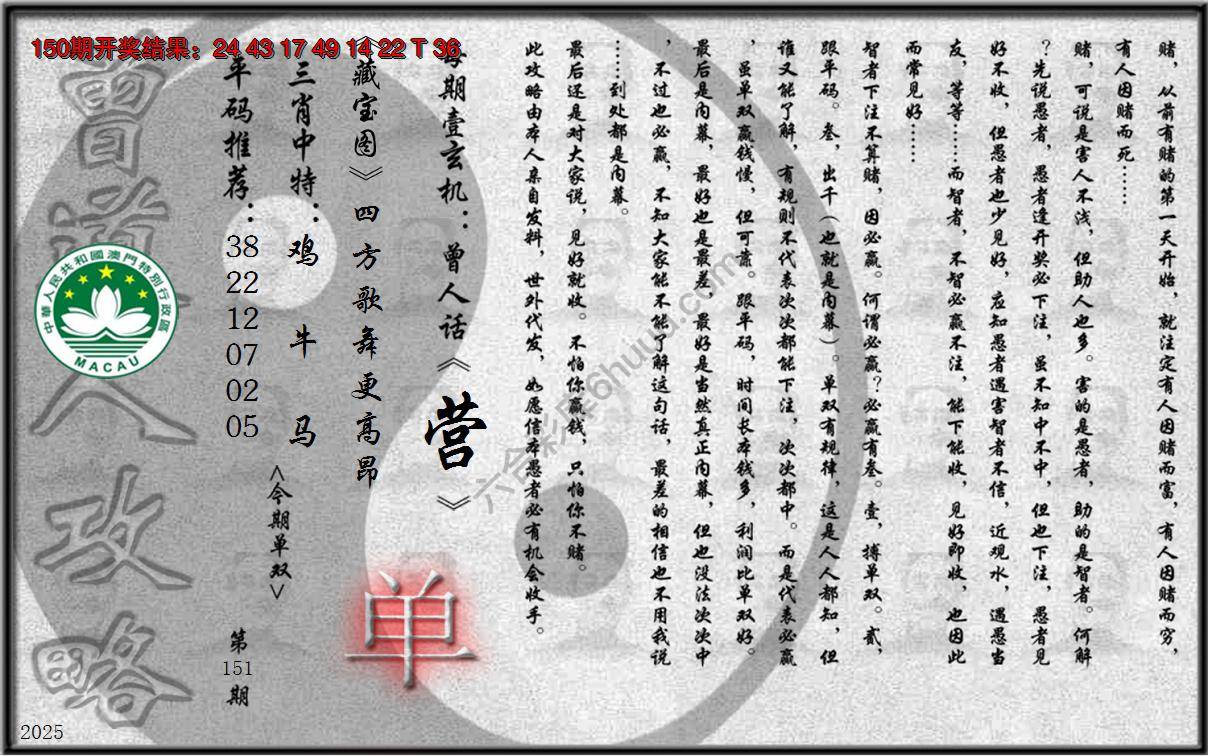 150期开奖结果：24 43 17 49 14 22 T 36
赌，从前有赌的第一天开始，就注定有人因赌而富，有人因赌而穷，
有人因赌而死……
赌，可说是害人不浅，但助人也多。害的是愚者，助的是智者。何解
？先说愚者，愚者逢开奖必下注，虽不知中不中，但也下注，愚者见
好不收，但愚者也少见好，应知愚者遇害智者不信，近观水，遇愚当
友，等等……而智者，不智必赢不注，能下能收，见好即收，也因此
而常见好……
智者下注不算赌，因必赢。何谓必赢？必赢有叁。壹，搏单双。贰，
跟平码。叁，出千（也就是内幕）。单双有规律，这是人人都知，但
谁又能了解，有规则不代表次次都能下注，次次都中。而是代表必赢
，虽单双赢钱慢，但可靠。跟平码，时间长本钱多，利润比单双好。
最后是内幕，最好也是最差，最好是当然真正内幕，但也没法次次中
，不过也必赢，不知大家能不能了解这句话，最差的相信也不用我说
……到处都是内幕。
最后还是对大家说，见好就收。不怕你赢钱，只怕你不赌。
此攻略由本人亲自发料，世外代发，如愿信本愚者必有机会收手。
每期壹玄机：曾人话《营》
《藏宝图》四方歌舞更高昂
单
三肖中特：鸡 牛 马
<今期单双>
平码推荐：
38
22
12
07
02
05
第
151
期
曾道人攻略
中華人民共和國澳門特別行政區
MACAU
六合彩库6huuu.com
2025